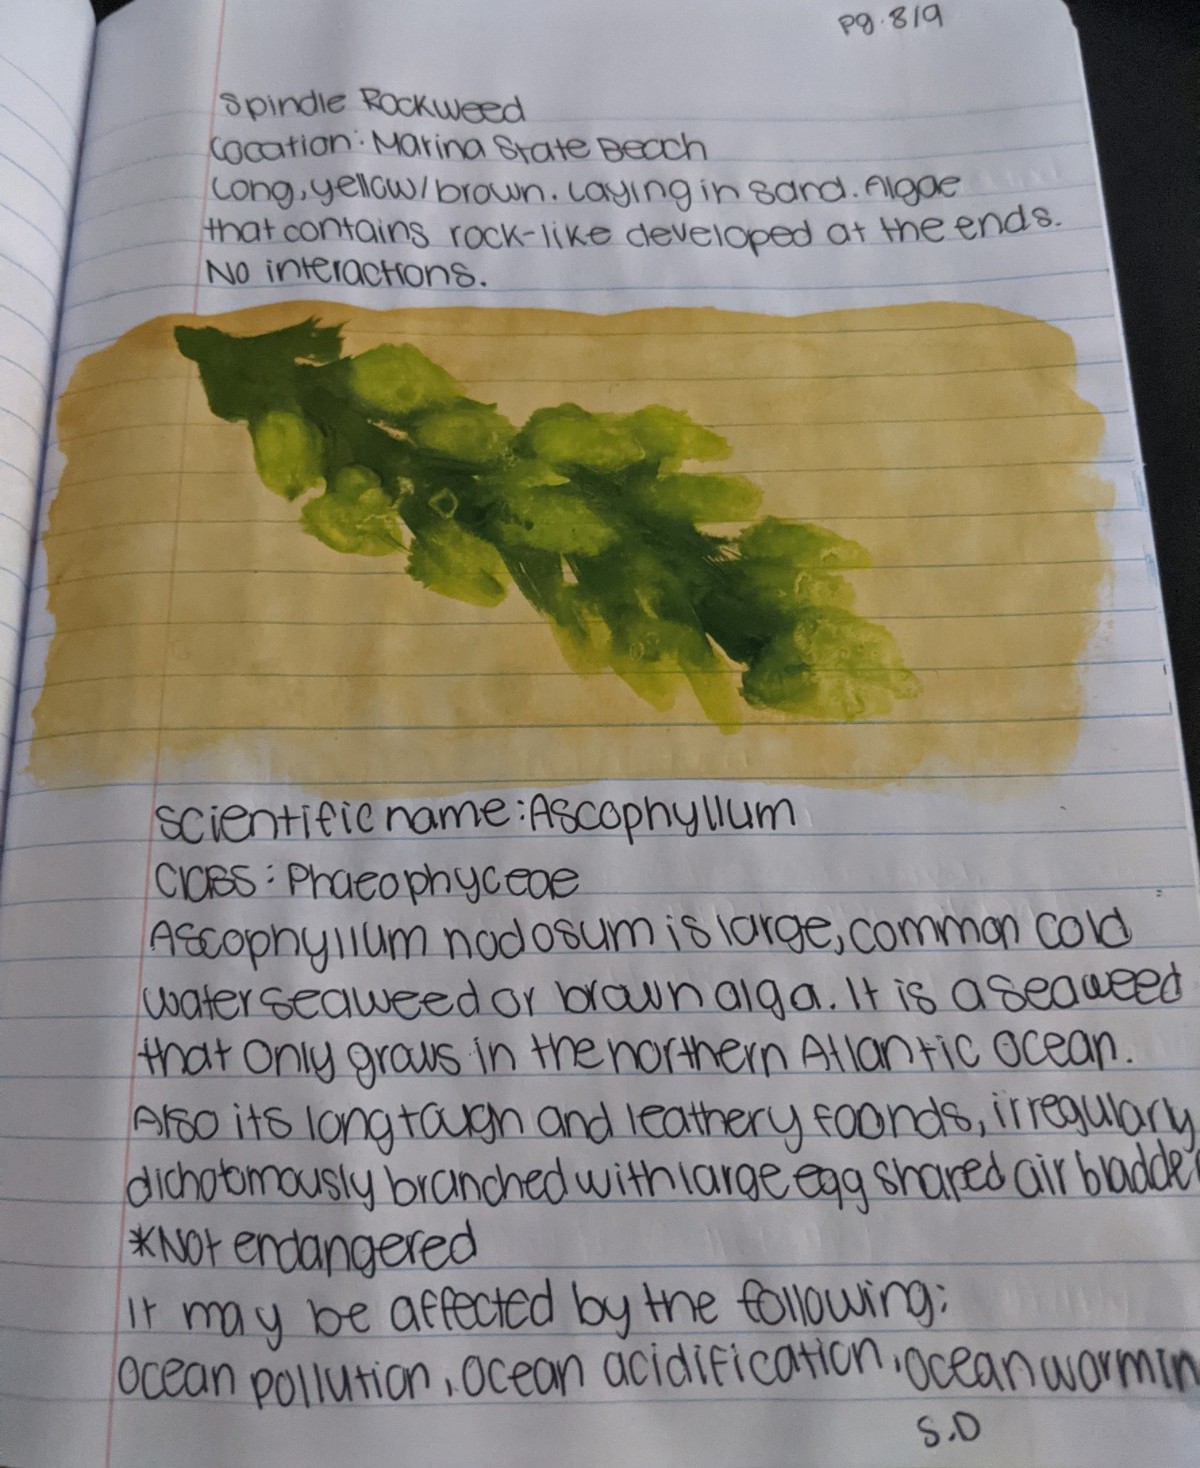 pg. 8/9
Spindle Rockweed
Location: Marina State Beach
Long, yellow/brown. Laying in sand. Algae
that contains rock-like developed at the ends.
No interactions.
Scientific name: Ascophyllum
Class: Phaeophyceae
Ascophyllum nodosum is large, common cold
water seaweed or brown alga. It is a seaweed
that only grows in the northern Atlantic Ocean.
Also its long tough and leathery foonds, irregulary
dichotomously branched with large egg shaped air bladder
*Not endangered
It may be affected by the following:
ocean pollution, ocean acidification, ocean warmin
S.D